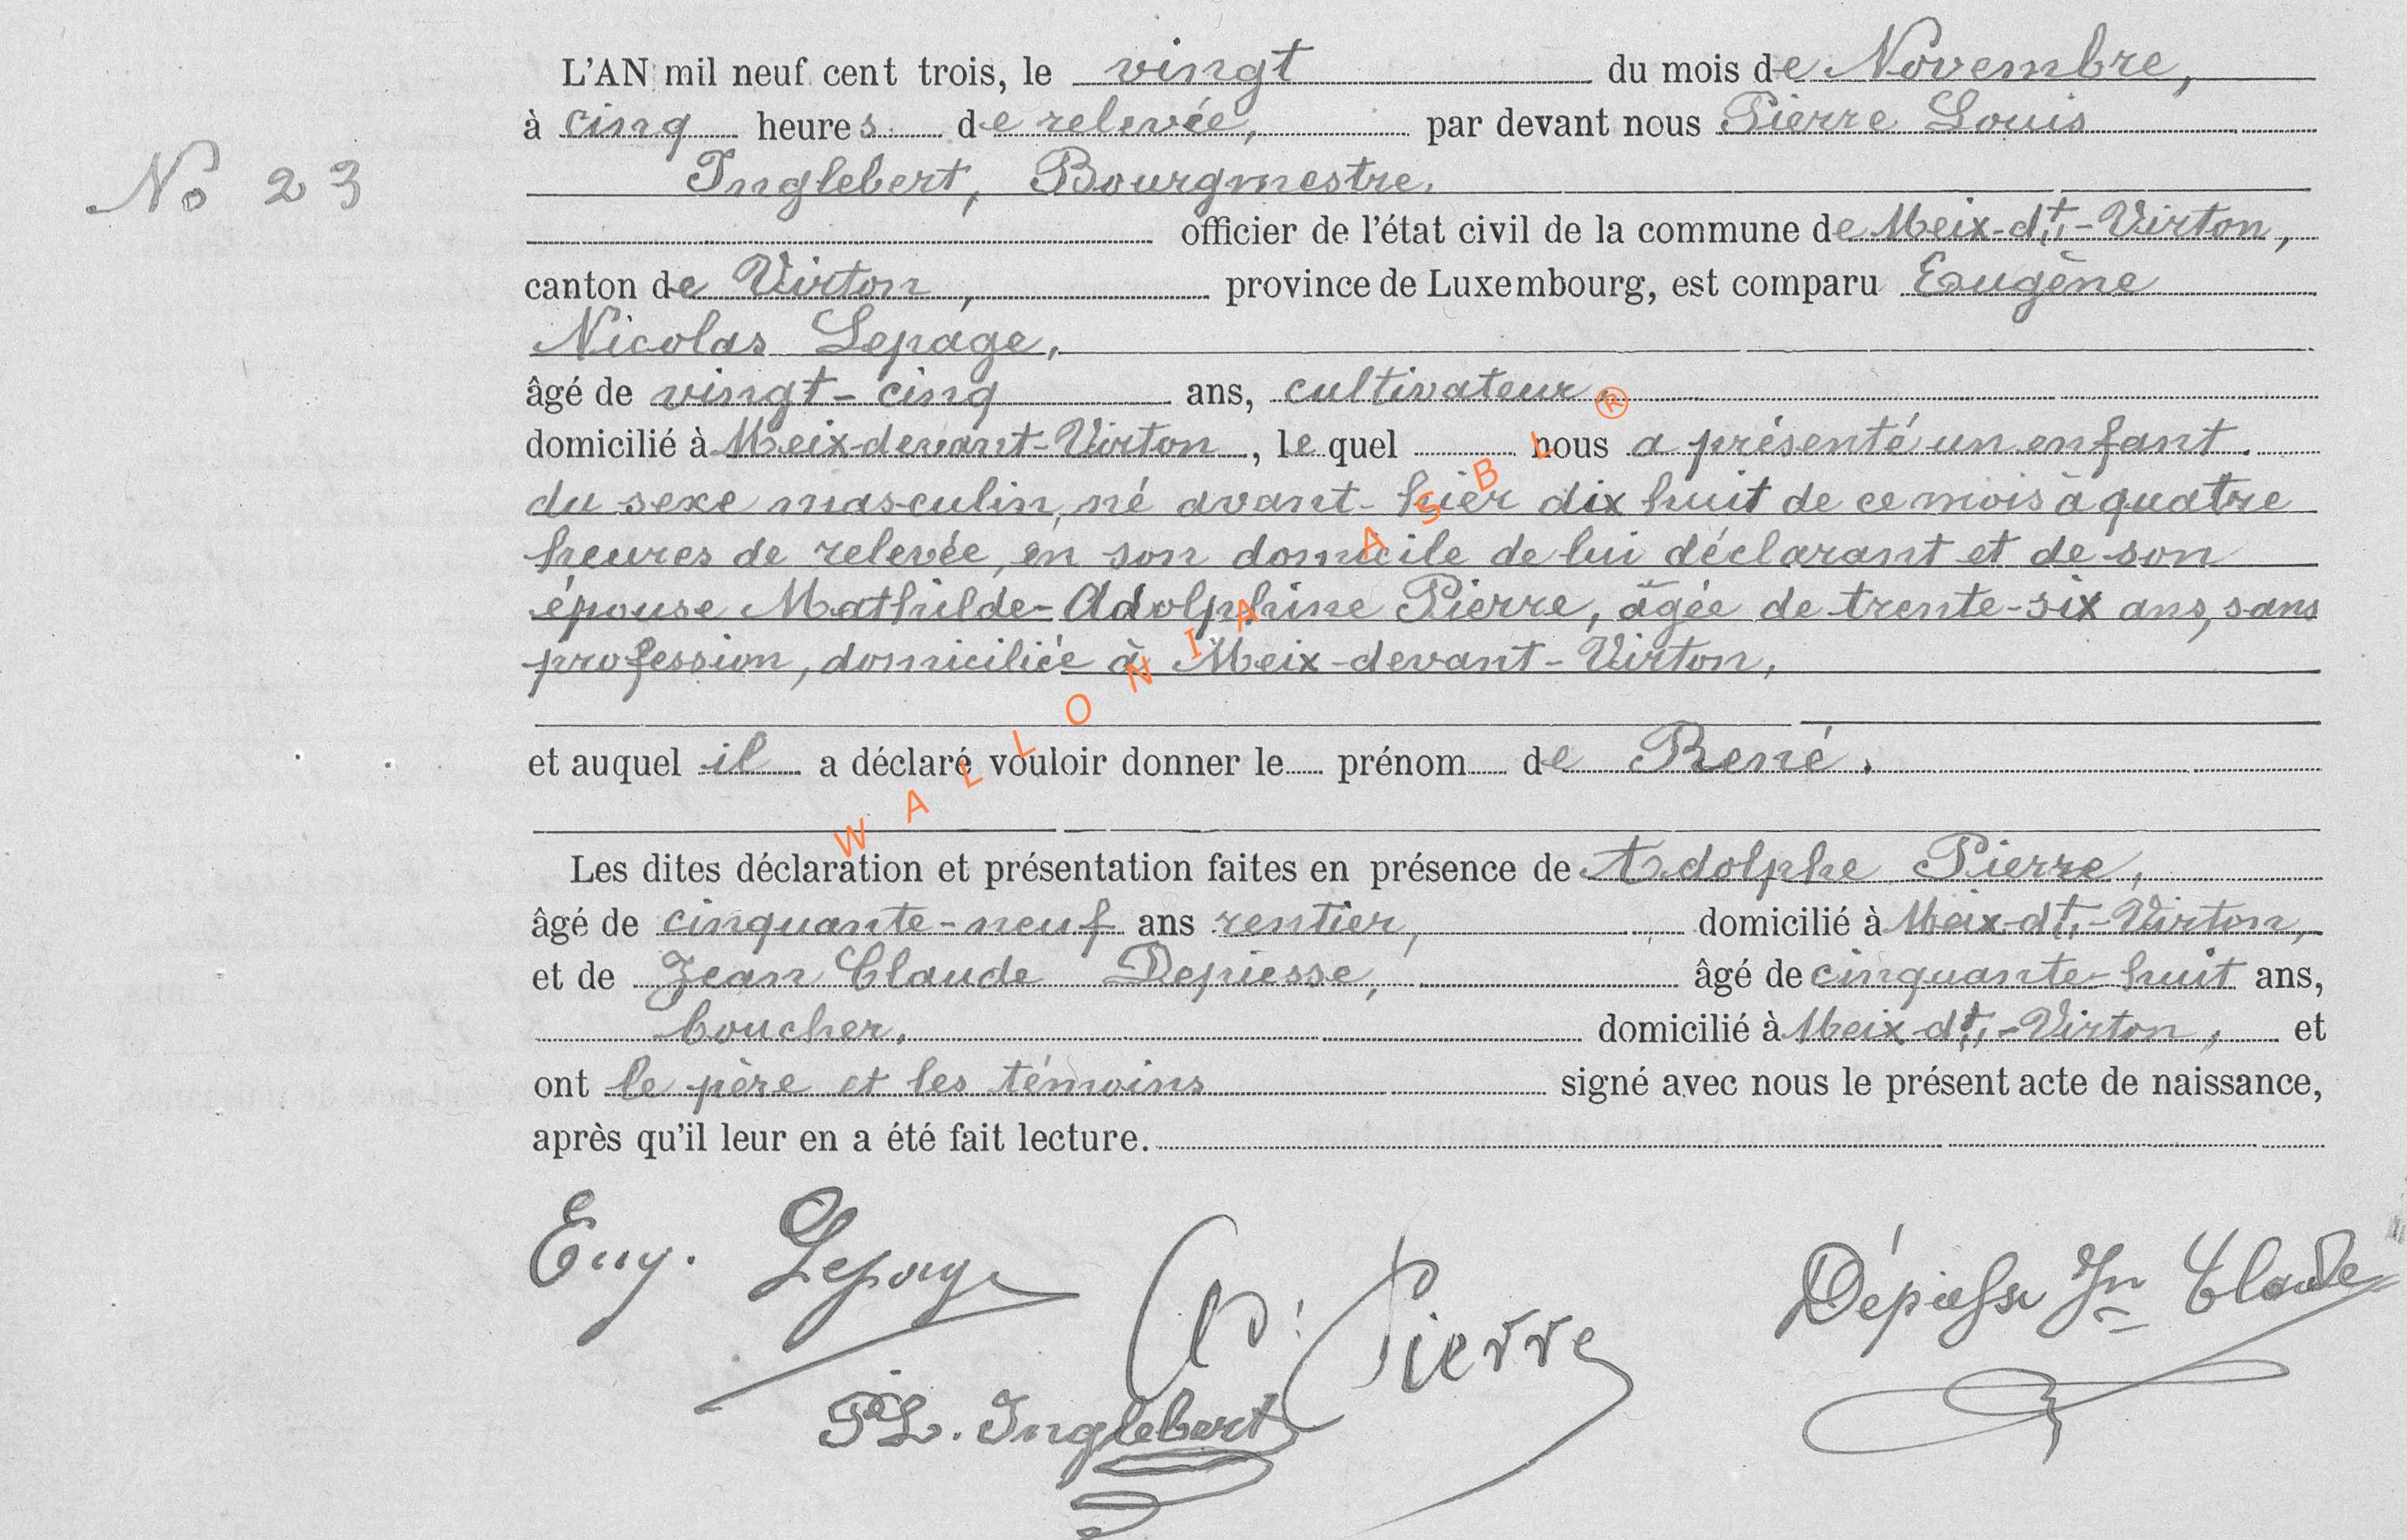 L'AN mil neuf cent trois, le vingt du mois de Novembre,
à cinq heures de relevée, par devant nous Pierre Louis
No 23
Inglebert, Bourgmestre,
officier de l'état civil de la commune de Meix-dt-Virton,
canton de Virton, province de Luxembourg, est comparu Eugène
Nicolas Lepage,
âgé de vingt-cinq ans, cultivateur,
domicilié à Meix-devant-Virton, lequel nous a présenté un enfant
du sexe masculin, né avant-hier dix huit de ce mois à quatre
heures de relevée, en son domicile de lui déclarant et de son
épouse Mathilde-Adolphine Pierre, âgée de trente-six ans, sans
profession, domiciliée à Meix-devant-Virton,
et auquel il a déclaré vouloir donner le prénom de René.
Les dites déclaration et présentation faites en présence de Adolphe Pierre,
âgé de cinquante-neuf ans rentier, domicilié à Meix-dt-Virton,
et de Jean Claude Depiesse, âgé de cinquante-huit ans,
boucher, domicilié à Meix-dt-Virton, et
ont le père et les témoins signé avec nous le présent acte de naissance,
après qu'il leur en a été fait lecture.
Eug. Lepage
A. Pierre
Dépiesse Jn Claude
P L. Inglebert
WALLONIA ASBL ®